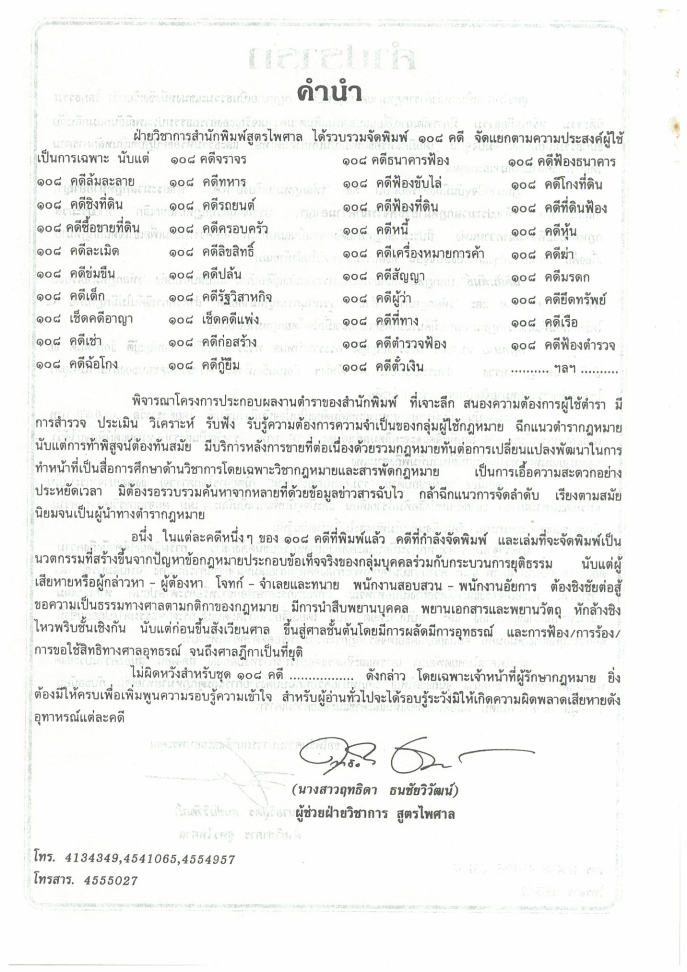 คำนำ
ฝ่ายวิชาการสำนักพิมพ์สูตรไพศาล ได้รวบรวมจัดพิมพ์ ๑๐๘ คดี จัดแยกตามความประสงค์ผู้ใช้
เป็นการเฉพาะ นับแต่ ๑๐๘ คดีจราจร ๑๐๘ คดีธนาคารฟ้อง ๑๐๘ คดีฟ้องธนาคาร
๑๐๘ คดีล้มละลาย ๑๐๘ คดีทหาร ๑๐๘ คดีฟ้องขับไล่ ๑๐๘ คดีโกงที่ดิน
๑๐๘ คดีชิงที่ดิน ๑๐๘ คดีรถยนต์ ๑๐๘ คดีฟ้องที่ดิน ๑๐๘ คดีที่ดินฟ้อง
๑๐๘ คดีซื้อขายที่ดิน ๑๐๘ คดีครอบครัว ๑๐๘ คดีหนี้ ๑๐๘ คดีหุ้น
๑๐๘ คดีละเมิด ๑๐๘ คดีลิขสิทธิ์ ๑๐๘ คดีเครื่องหมายการค้า ๑๐๘ คดีฆ่า
๑๐๘ คดีข่มขืน ๑๐๘ คดีปล้น ๑๐๘ คดีสัญญา ๑๐๘ คดีมรดก
๑๐๘ คดีเด็ก ๑๐๘ คดีรัฐวิสาหกิจ ๑๐๘ คดีผู้ว่า ๑๐๘ คดียึดทรัพย์
๑๐๘ เช็คคดีอาญา ๑๐๘ เช็คคดีแพ่ง ๑๐๘ คดีที่ทาง ๑๐๘ คดีเรือ
๑๐๘ คดีเช่า ๑๐๘ คดีก่อสร้าง ๑๐๘ คดีตำรวจฟ้อง ๑๐๘ คดีฟ้องตำรวจ
๑๐๘ คดีฉ้อโกง ๑๐๘ คดีกู้ยืม ๑๐๘ คดีตั๋วเงิน .......... ฯลฯ ..........
พิจารณาโครงการประกอบผลงานตำราของสำนักพิมพ์ ที่เจาะลึก สนองความต้องการผู้ใช้ตำรา มี
การสำรวจ ประเมิน วิเคราะห์ รับฟัง รับรู้ความต้องการความจำเป็นของกลุ่มผู้ใช้กฎหมาย ฉีกแนวตำรากฎหมาย
นับแต่การท้าพิสูจน์ต้องทันสมัย มีบริการหลังการขายที่ต่อเนื่องด้วยรวมกฎหมายทันต่อการเปลี่ยนแปลงพัฒนาในการ
ทำหน้าที่เป็นสื่อการศึกษาด้านวิชาการโดยเฉพาะวิชากฎหมายและสารพัดกฎหมาย เป็นการเอื้อความสะดวกอย่าง
ประหยัดเวลา มิต้องรอรวบรวมค้นหาจากหลายที่ด้วยข้อมูลข่าวสารฉับไว กล้าฉีกแนวการจัดลำดับ เรียงตามสมัย
นิยมจนเป็นผู้นำทางตำรากฎหมาย
อนึ่ง ในแต่ละคดีหนึ่งๆ ของ ๑๐๘ คดีที่พิมพ์แล้ว คดีที่กำลังจัดพิมพ์ และเล่มที่จะจัดพิมพ์เป็น
นวตกรรมที่สร้างขึ้นจากปัญหาข้อกฎหมายประกอบข้อเท็จจริงของกลุ่มบุคคลร่วมกับกระบวนการยุติธรรม นับแต่ผู้
เสียหายหรือผู้กล่าวหา - ผู้ต้องหา โจทก์ - จำเลยและทนาย พนักงานสอบสวน - พนักงานอัยการ ต้องชิงชัยต่อสู้
ขอความเป็นธรรมทางศาลตามกติกาของกฎหมาย มีการนำสืบพยานบุคคล พยานเอกสารและพยานวัตถุ หักล้างชิง
ไหวพริบชั้นเชิงกัน นับแต่ก่อนขึ้นสังเวียนศาล ขึ้นสู่ศาลชั้นต้นโดยมีการผลัดมีการอุทธรณ์ และการฟ้อง/การร้อง/
การขอใช้สิทธิทางศาลอุทธรณ์ จนถึงศาลฎีกาเป็นที่ยุติ
ไม่ผิดหวังสำหรับชุด ๑๐๘ คดี ................ ดังกล่าว โดยเฉพาะเจ้าหน้าที่ผู้รักษากฎหมาย ยิ่ง
ต้องมีให้ครบเพื่อเพิ่มพูนความรอบรู้ความเข้าใจ สำหรับผู้อ่านทั่วไปจะได้รอบรู้ระวังมิให้เกิดความผิดพลาดเสียหายดัง
อุทาหรณ์แต่ละคดี
(นางสาวฤทธิดา ธนชัยวิวัฒน์)
ผู้ช่วยฝ่ายวิชาการ สูตรไพศาล
โทร. 4134349,4541065,4554957
โทรสาร. 4555027